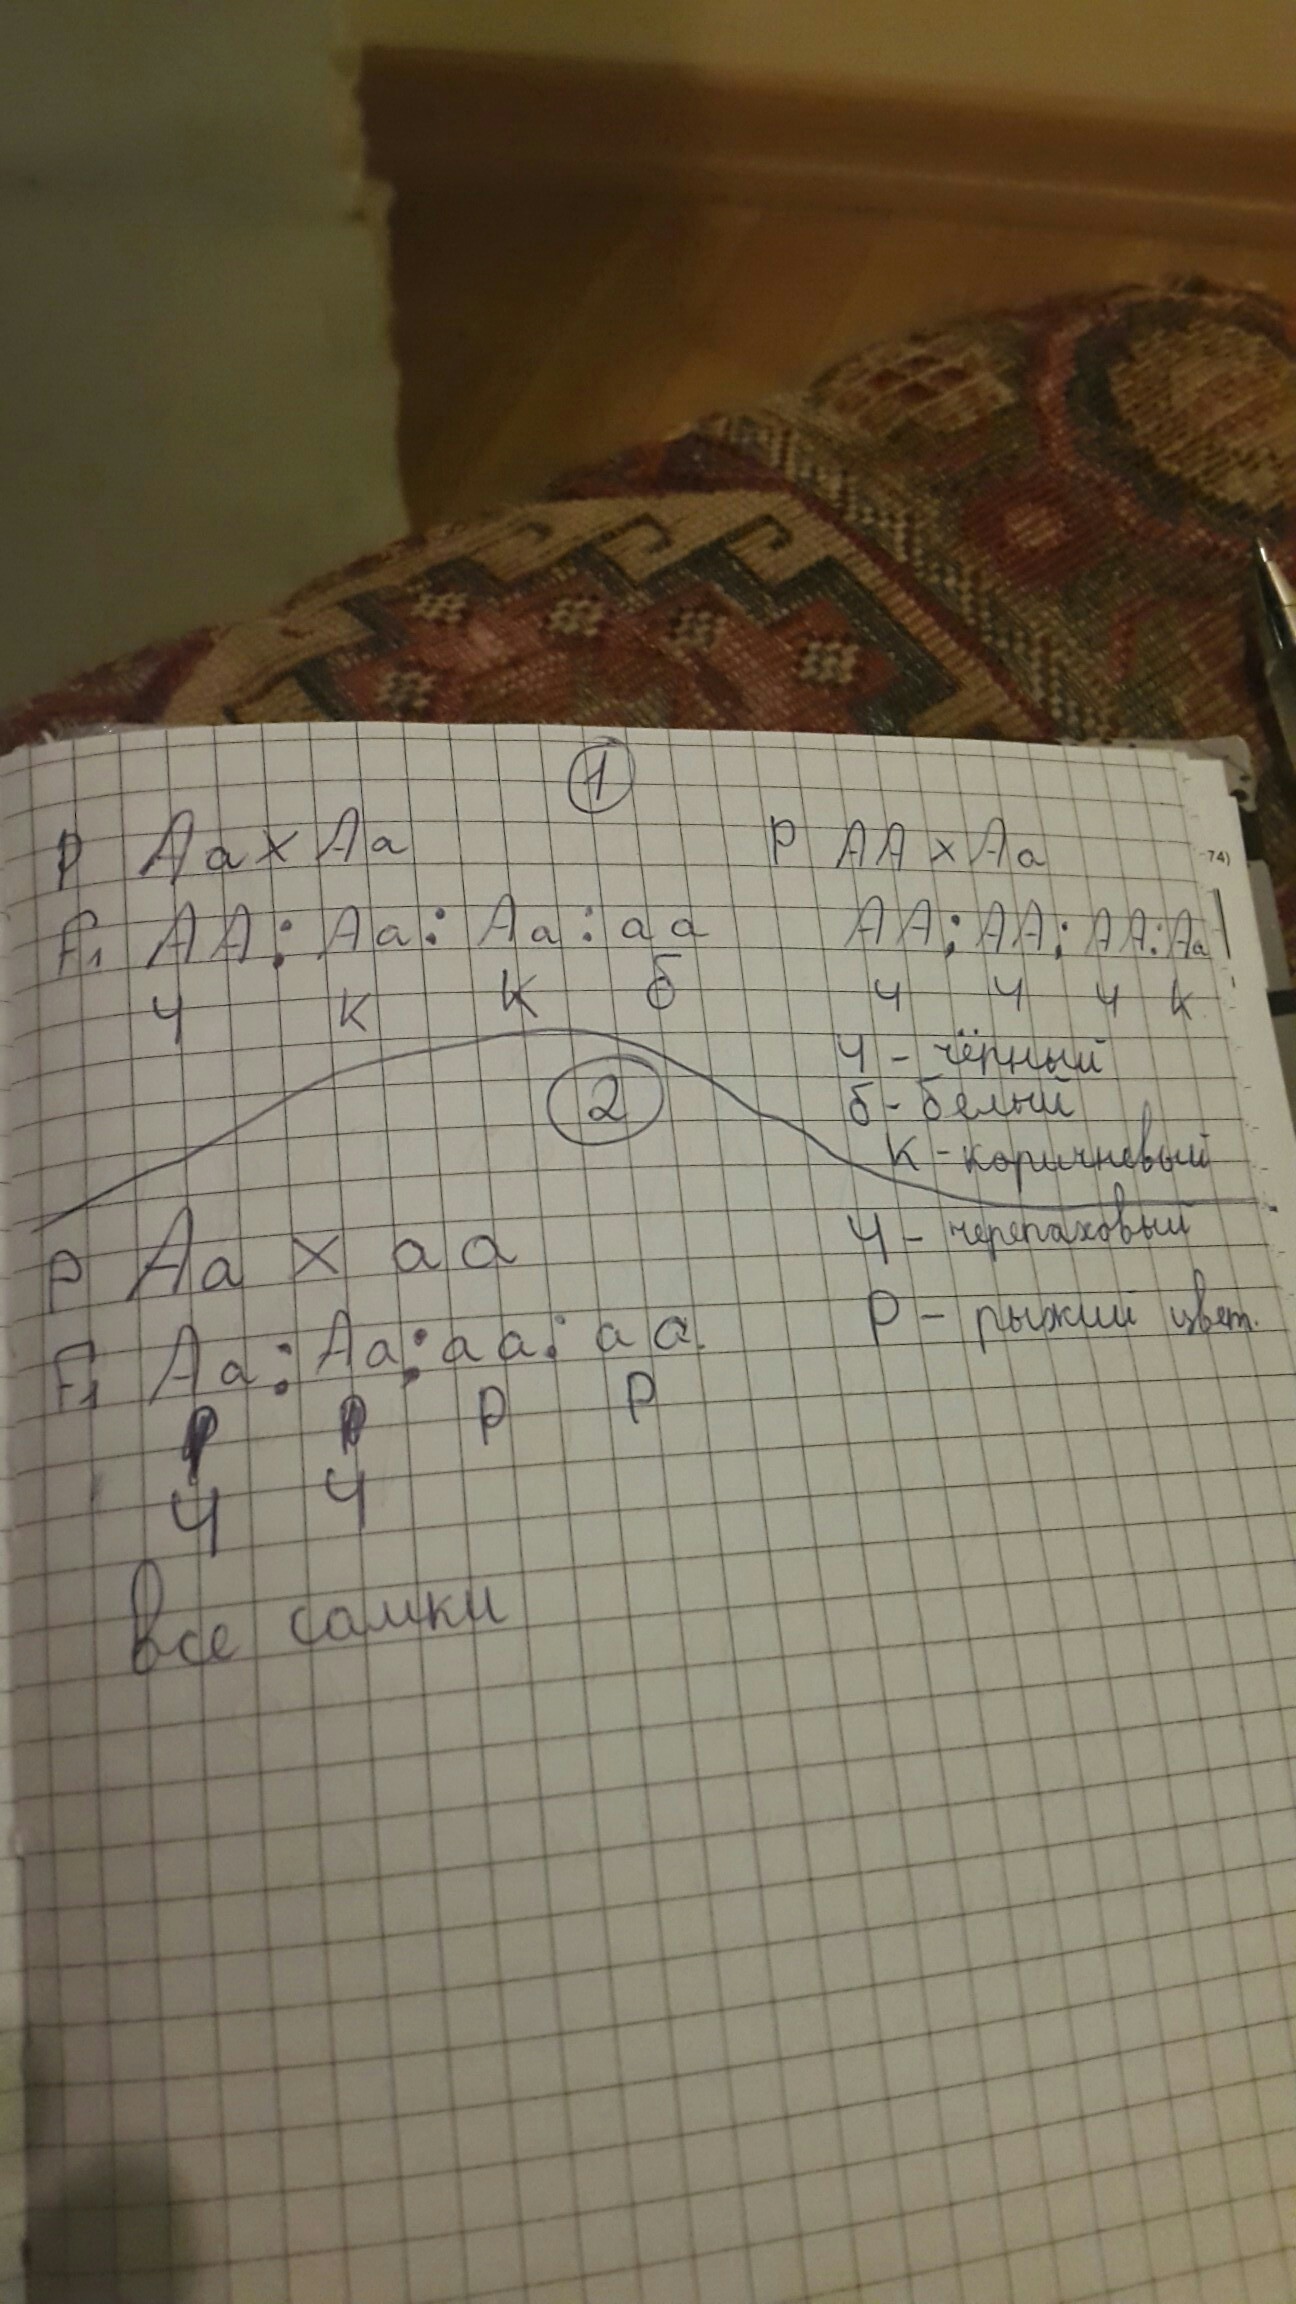 1
P Aa x Aa
P AA x Aa
74)
F1 AA : Aa : Aa : aa
AA : AA : AA : Aa
ч к к б
ч ч ч к
ч - чёрный
б - белый
к - коричневый
2
P Aa x aa
ч - черепаховый
F1 Aa : Aa : aa : aa
Р - рыжий цвет.
Р Р Р Р
ч ч
все самки